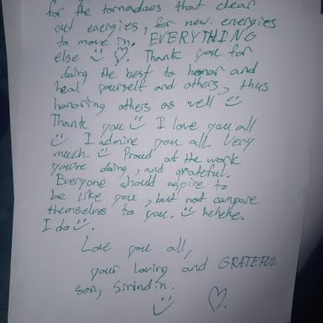 for the tornadoes that clear
out energies, for new energies
to move in. EVERYTHING
else :) ♡. Thank you for
doing the best to honor and
heal yourself and others, thus
honoring others as well :)
Thank you :) I love you all
:) I admire you all very
much. :) Proud of the work
you're doing, and grateful.
Everyone should aspire to
be like you, but not compare
themselves to you. :) hehehe.
I do :).
Love you all,
your loving and GRATEFUL
son,
:) ♡.